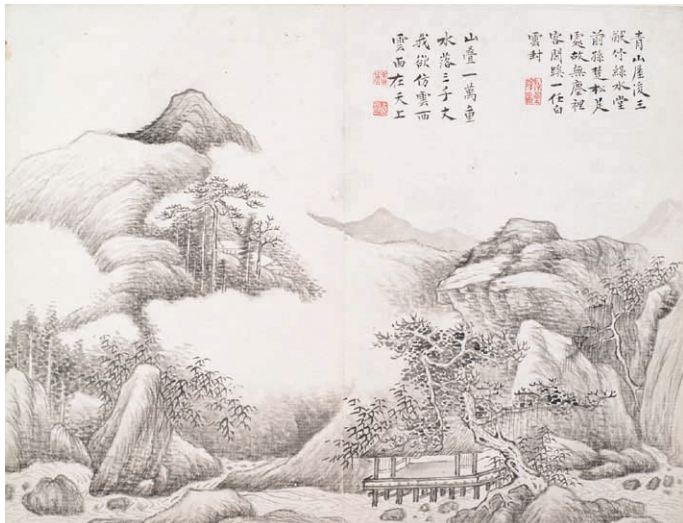 青山屋後王
猷竹綠水堂
前孫楚松是
處故無塵裡
客閒蹤一任白
雲封
山疊一萬重
水落三千丈
我欲仿雲西
雲西在天上